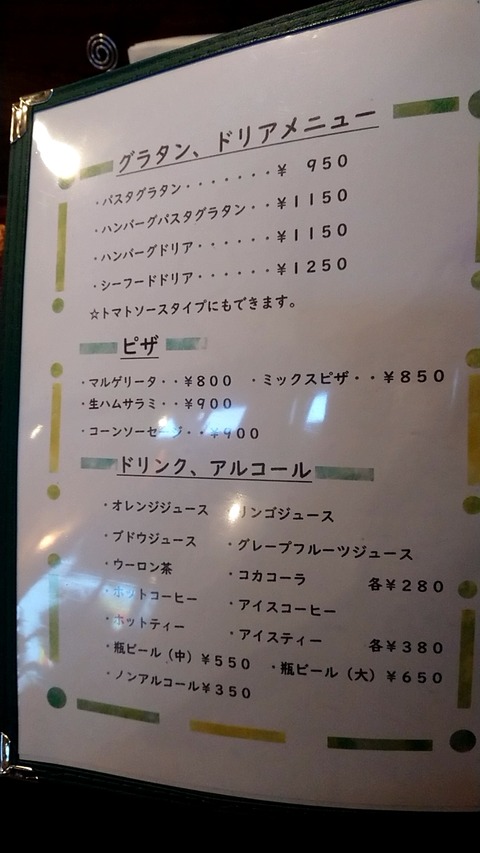 グラタン、ドリアメニュー
・パスタグラタン・・・・・・・¥ 950
・ハンバーグパスタグラタン・・¥1150
・ハンバーグドリア・・・・・・¥1150
・シーフードドリア・・・・・・¥1250
☆トマトソースタイプにもできます。
ピザ
・マルゲリータ・・¥800 ・ミックスピザ・・¥850
・生ハムサラミ・・¥900
・コーンソーセージ・・¥900
ドリンク、アルコール
・オレンジジュース ・リンゴジュース
・ブドウジュース ・グレープフルーツジュース
・ウーロン茶 ・コカコーラ 各¥280
・ホットコーヒー ・アイスコーヒー
・ホットティー ・アイスティー 各¥380
・瓶ビール（中）¥550 ・瓶ビール（大）¥650
・ノンアルコール¥350